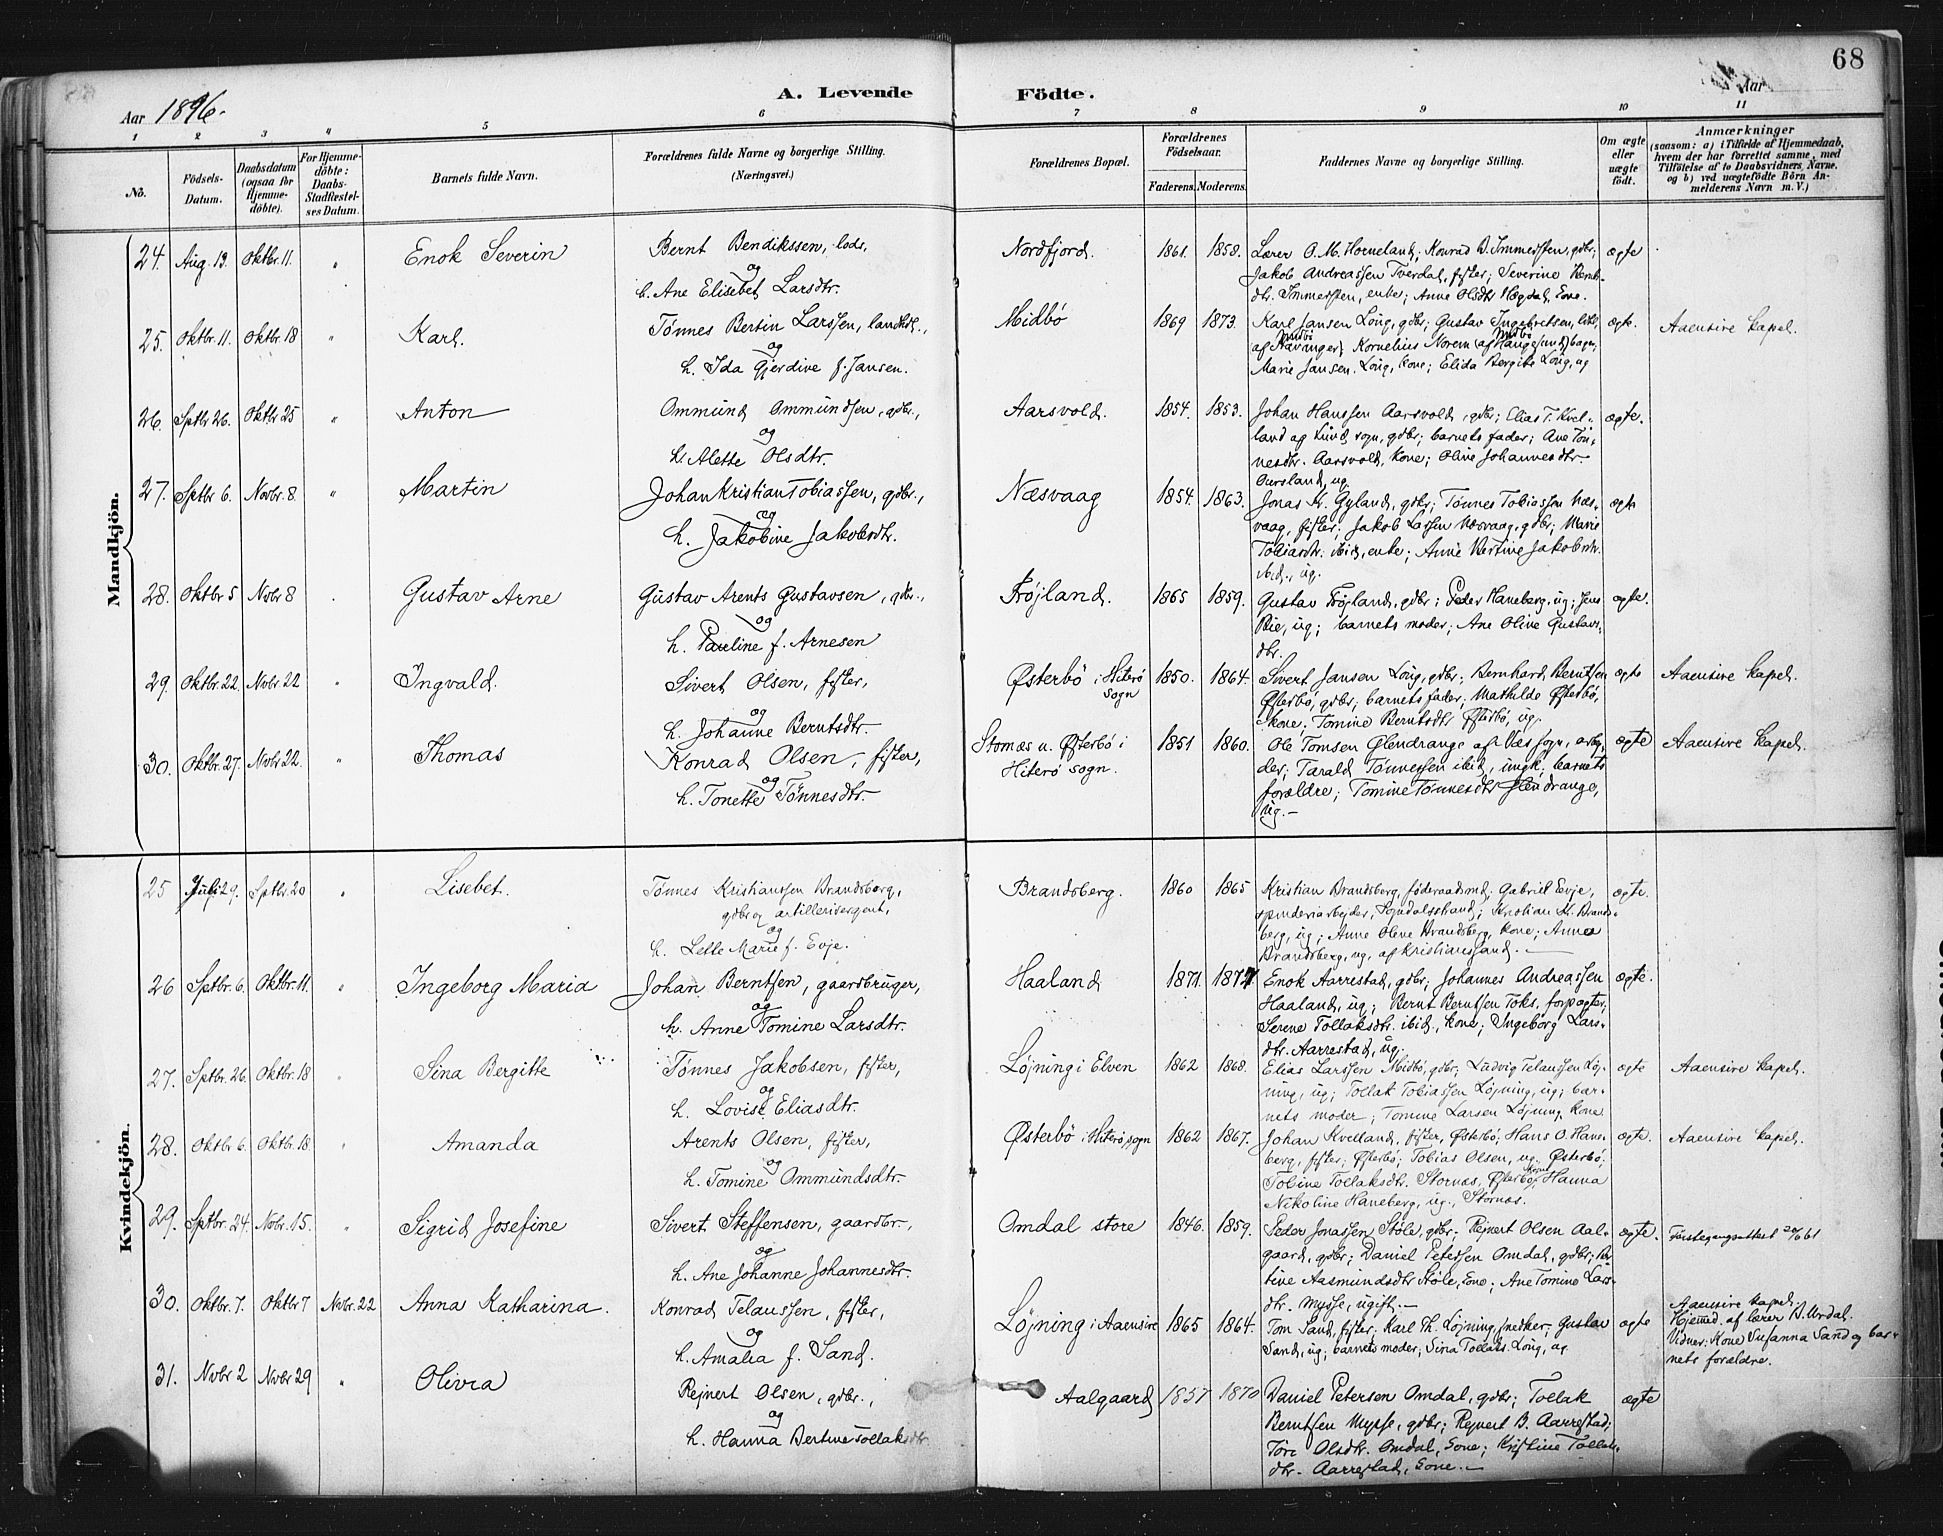 68
Aar 1896.
A. Levende Födte.
Aar
1 2 3 4 5 6 7 8 9 10 11
No.
Födsels-Datum.
Daabsdatum (ogsaa for Hjemme-döbte).
For Hjemme-döbte: Daabs-Stadfæstel-ses Datum.
Barnets fulde Navn.
Forældrenes fulde Navne og borgerlige Stilling.
(Næringsvei.)
Forældrenes Bopæl.
Forældrenes Födselsaar.
Faderens. Moderens.
Faddernes Navne og borgerlige Stilling.
Om ægte eller uægte født.
Anmærkninger
(saasom: a) i Tilfælde af Hjemmedaab, hvem der har forrettet samme, med Tilföielse af to Daabsvidners Navne. og b) ved uægtefödte Börn An-melderens Navn m. V.)
Mandkjön.
24. Aug. 19. Oktbr. 11. " Enok Severin
Bernt Bendikssen, lods,
og
h. Ane Elisebet Larsdtr.
Nordfjord. 1861. 1858.
Lærer O. M. Horneland; Konrad B. Immerstein, gdbr;
Jakob Andreassen Tverdal, fisker; Severine
dtr. Immerstein, enke; Anne Olsdtr Hegdal, kone.
ægte
25. Oktbr. 11. Oktbr. 18 " Karl.
Tønnes Bertin Larssen, landh.,
og
h. Ida Gjerdine f. Jansen.
Midbö 1869 1873.
Karl Jansen Löug, gdbr; Gustav Ingebretsen,
af Stavanger; Kornelius Norem (af Haugesund) bagr;
Marie Jansen Löug, kone; Elida Bergitte Löug, ug
ægte. Aaensire kapel.
26. Sptbr 26. Oktbr 25 " Anton
Ommund Ommundsen, gdbr.,
og
h. Alette Olsdtr.
Aarsvold. 1854. 1853.
Johan Hanssen Aarsvold, gdbr; Elias T. Kvel-
land af Lund sogn, gdbr; barnets fader; Ane Tön-
nesdtr. Aarsvold, kone; Oline Johannesdtr.
Oursland, ug.
ægte.
27. Sptbr 6. Novbr. 8. " Martin
Johan Kristian Tobiassen, gdbr.,
og
h. Jakobine Jakobsdtr.
Næsvaag 1854 1863.
Jonas K. Gyland, gdbr; Tönnes Tobiassen Næs-
vaag, fisker; Jakob Larsen Næsvaag, gdbr; Marie
Tobiasdtr. ibid, enke; Anne Bertine Jakobsdtr.
ibid., ug.
ægte
28. Oktbr 5 Novbr 8 Gustav Arne
Gustav Arents Gustavsen, gdbr.,
og
h. Pauline f. Arnesen
Fröjland. 1865 1859.
Gustav Fröjland, gdbr; Peder Haneberg, ug; Jens
Rie, ug; barnets moder; Ane Oline Gustavs-
dtr.
ægte.
29. Oktbr. 22. Novbr 22 " Ingvald.
Sivert Olsen, fisker,
og
h. Johanne Berntsdtr.
Østerbö i Hiterö sogn 1850. 1864.
Sivert Jansen Löug, gdbr; Bernhard Berntsen
Østerbö, gdbr; barnets fader; Mathilde Østerbö,
kone; Tomine Berntsdtr Østerbö, ug.
ægte Aaensire kapel.
30. Oktbr. 27. Novbr 22. " Thomas
Konrad Olsen, fisker,
og
h. Tonette Tönnesdtr.
Stornæs u. Østerbö i
Hiterö sogn. 1851 1860.
Ole Tomsen Ølendrange af Næs sogn, arbej-
der; Tarald Tönnessen ibid, ungk; barnets
forældre; Tomine Tönnesdtr Ølendrange,
ug.
ægte Aaensire kapel.
Kvindekjön.
25 Juli 29. Sptbr. 20 " Lisebet.
Tönnes Kristianssen Brandsberg,
gdbr og artillerisergent,
og
h. Lette Marie f. Evje.
Brandsberg. 1860 1865
Kristian Brandsberg, föderaadsmd; Gabriel Evje,
spinderiarbejder, Sogndalsstrand; Kristian K. Brands-
berg, ug; Anne Olene Brandsberg, kone; Anna
Brandsberg, ug, af Kristianssand.
ægte.
26 Sptbr. 6. Oktbr. 11. " Ingeborg Maria
Johan Berntsen, gaardbruger,
og
h. Anne Tomine Larsdtr.
Haaland 1871. 1871.
Enok Aarrestad, gdbr; Johannes Andreassen
Haaland, ug; Bernt Berntsen Toks, forpagter;
Serene Tollaksdtr. ibid., kone; Ingeborg Lars-
dtr. Aarrestad, ug.
ægte.
27. Sptbr. 26. Oktbr. 18 " Sina Bergitte
Tönnes Jakobsen, fisker,
og
h. Lovise Eliasdtr.
Löjning i Elven 1862 1868.
Elias Larssen Midbö, gdbr; Ludvig Telaussen Löj-
ning, ug; Tollak Tobiassen Löjning, ug; bar-
nets moder; Tomine Larsen Löjning, kone
ægte Aaensire kapel.
28. Oktbr 6. Oktbr. 18. " Amanda
Arents Olsen, fisker,
og
h. Tomine Ommundsdtr.
Østerbö i Hiterö sogn 1862 1867.
Johan Kvelland, fisker, Østerbö; Hans O. Hane-
berg, fisker; Østerbö; Tobias Olsen, ug. Østerbö;
Tobine Tollaksdtr. Stornæs, Østerbö, kone; Hanna
Nikoline Haneberg, ug., Stornæs.
ægte. Aaensire kapel.
29. Sptbr. 24. Novbr. 15. " Sigrid Josefine
Sivert Steffensen, gaardbr.,
og
h. Ane Johanne Johannesdtr.
Omdal store 1846. 1859.
Peder Jonassen Stöle, gdbr; Rejnert Olsen Aal-
gaard, gdbr; Daniel Petersen Omdal, gdbr; Ber-
tine Aasmundsdtr Stöle, kone; Ane Tomine Lars-
dtr. Mysse, ugift.
ægte. Förstegangsattest
30. Oktbr. 7. Oktbr 7 Novbr. 22 Anna Katharina.
Konrad Telaussen, fisker,
og
h. Amalia f. Sand.
Löjning i Aaensire 1865 1864.
Tom Sand, fisker; Karl Th. Löjning, snedker; Gustav
Sand, ug; barnets moder; Sina Tollaks. Löug, ug
ægte Aaensire kapel
Hjemd. af lærer B. Urdal.
Vidner: Kone Susanna Sand og bar-
nets forældre.
31. Novbr 2 Novbr 29 " Olivia
Rejnert Olsen, gdbr.,
og
h. Hanna Bertine Tollaksdtr
Aalgaard 1857 1870
Daniel Petersen Omdal, gdbr; Tollak
Berntsen Mysse, gdbr; Rejnert B. Aarrestad;
Tore Olsdtr. Omdal, kone; Kristine Tollaks-
dtr. Aarrestad, kone.
ægte